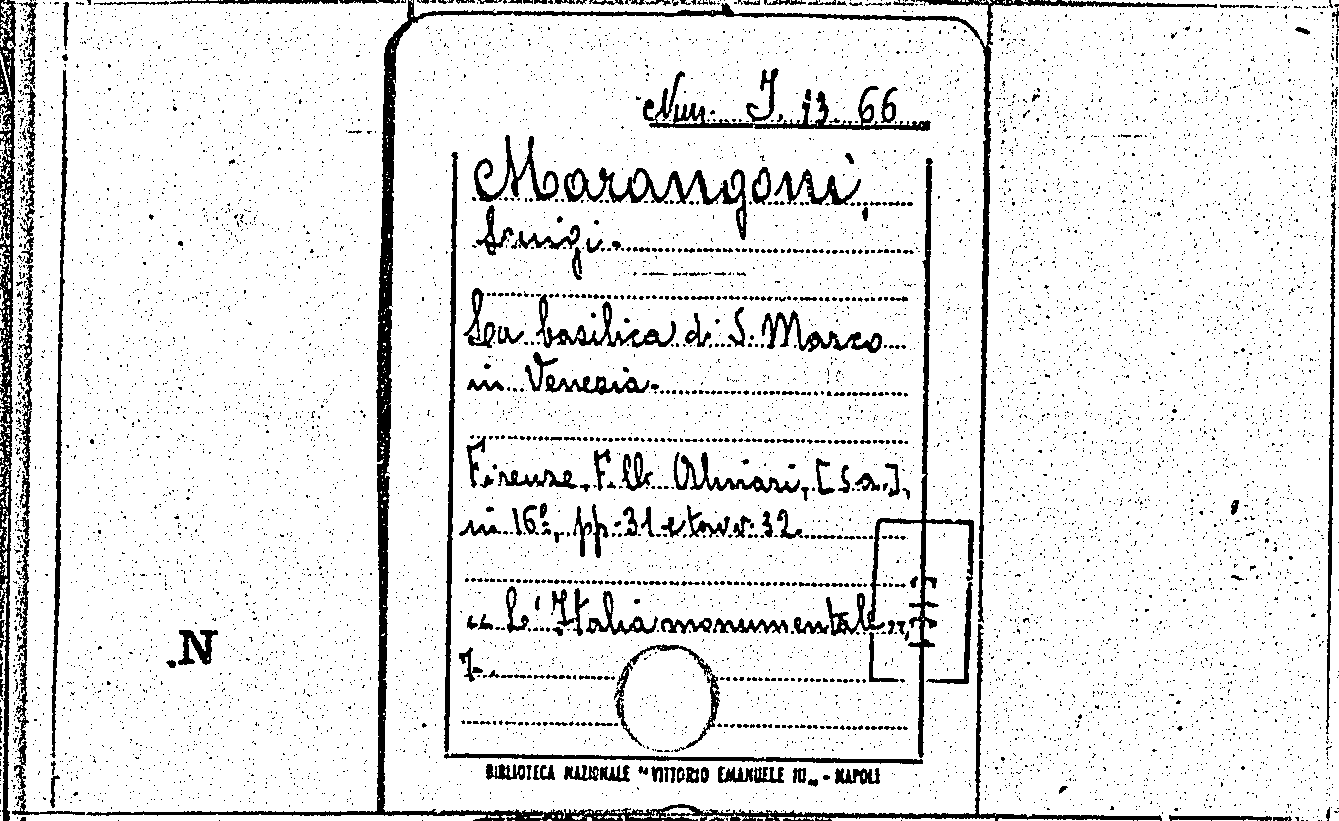 Nun. I. 13. 66
Marangoni,
Luigi.
La basilica di S. Marco
in Venezia.
Firenze, F.lli Alinari, [s.a.],
in 16º, pp. 31 e tavv. 32.
„ L'Italia monumentale „,
7.
.N
BIBLIOTECA NAZIONALE "VITTORIO EMANUELE III„ - NAPOLI